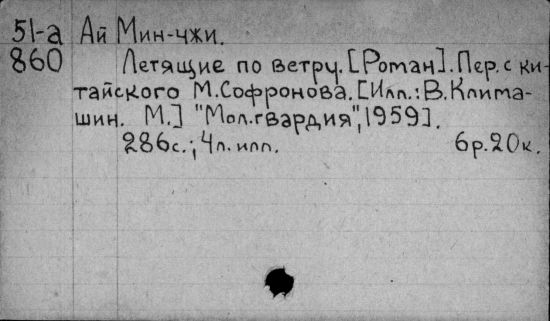 51-а Ай Мин-чжи.
860 Летящие по ветру. [Роман]. Пер. с ки-
тайского М.Софронова. [Илл.: В.Клима-
шин. М.] "Мол.гвардия", 1959].
286с.; 4л. илл. 6р.20к.